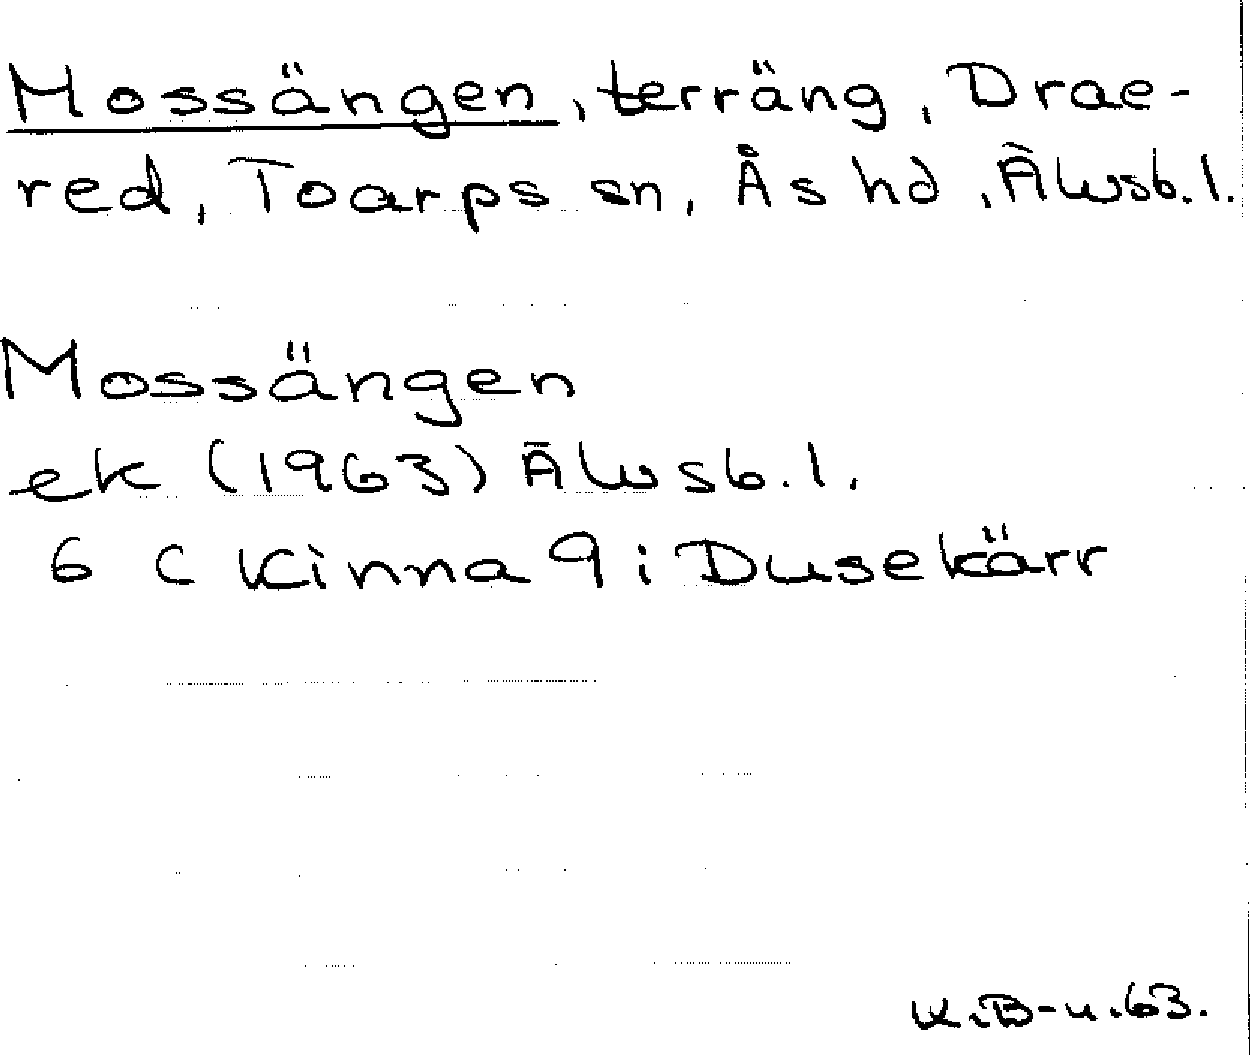 Mossängen, terräng, Drae-
red, Toarps sn, Ås hd, Älvsb. l.
Mossängen
ek (1963) Älvsb. l.
6 C Kinna 9 i Dusekärr
K.B-n.63.